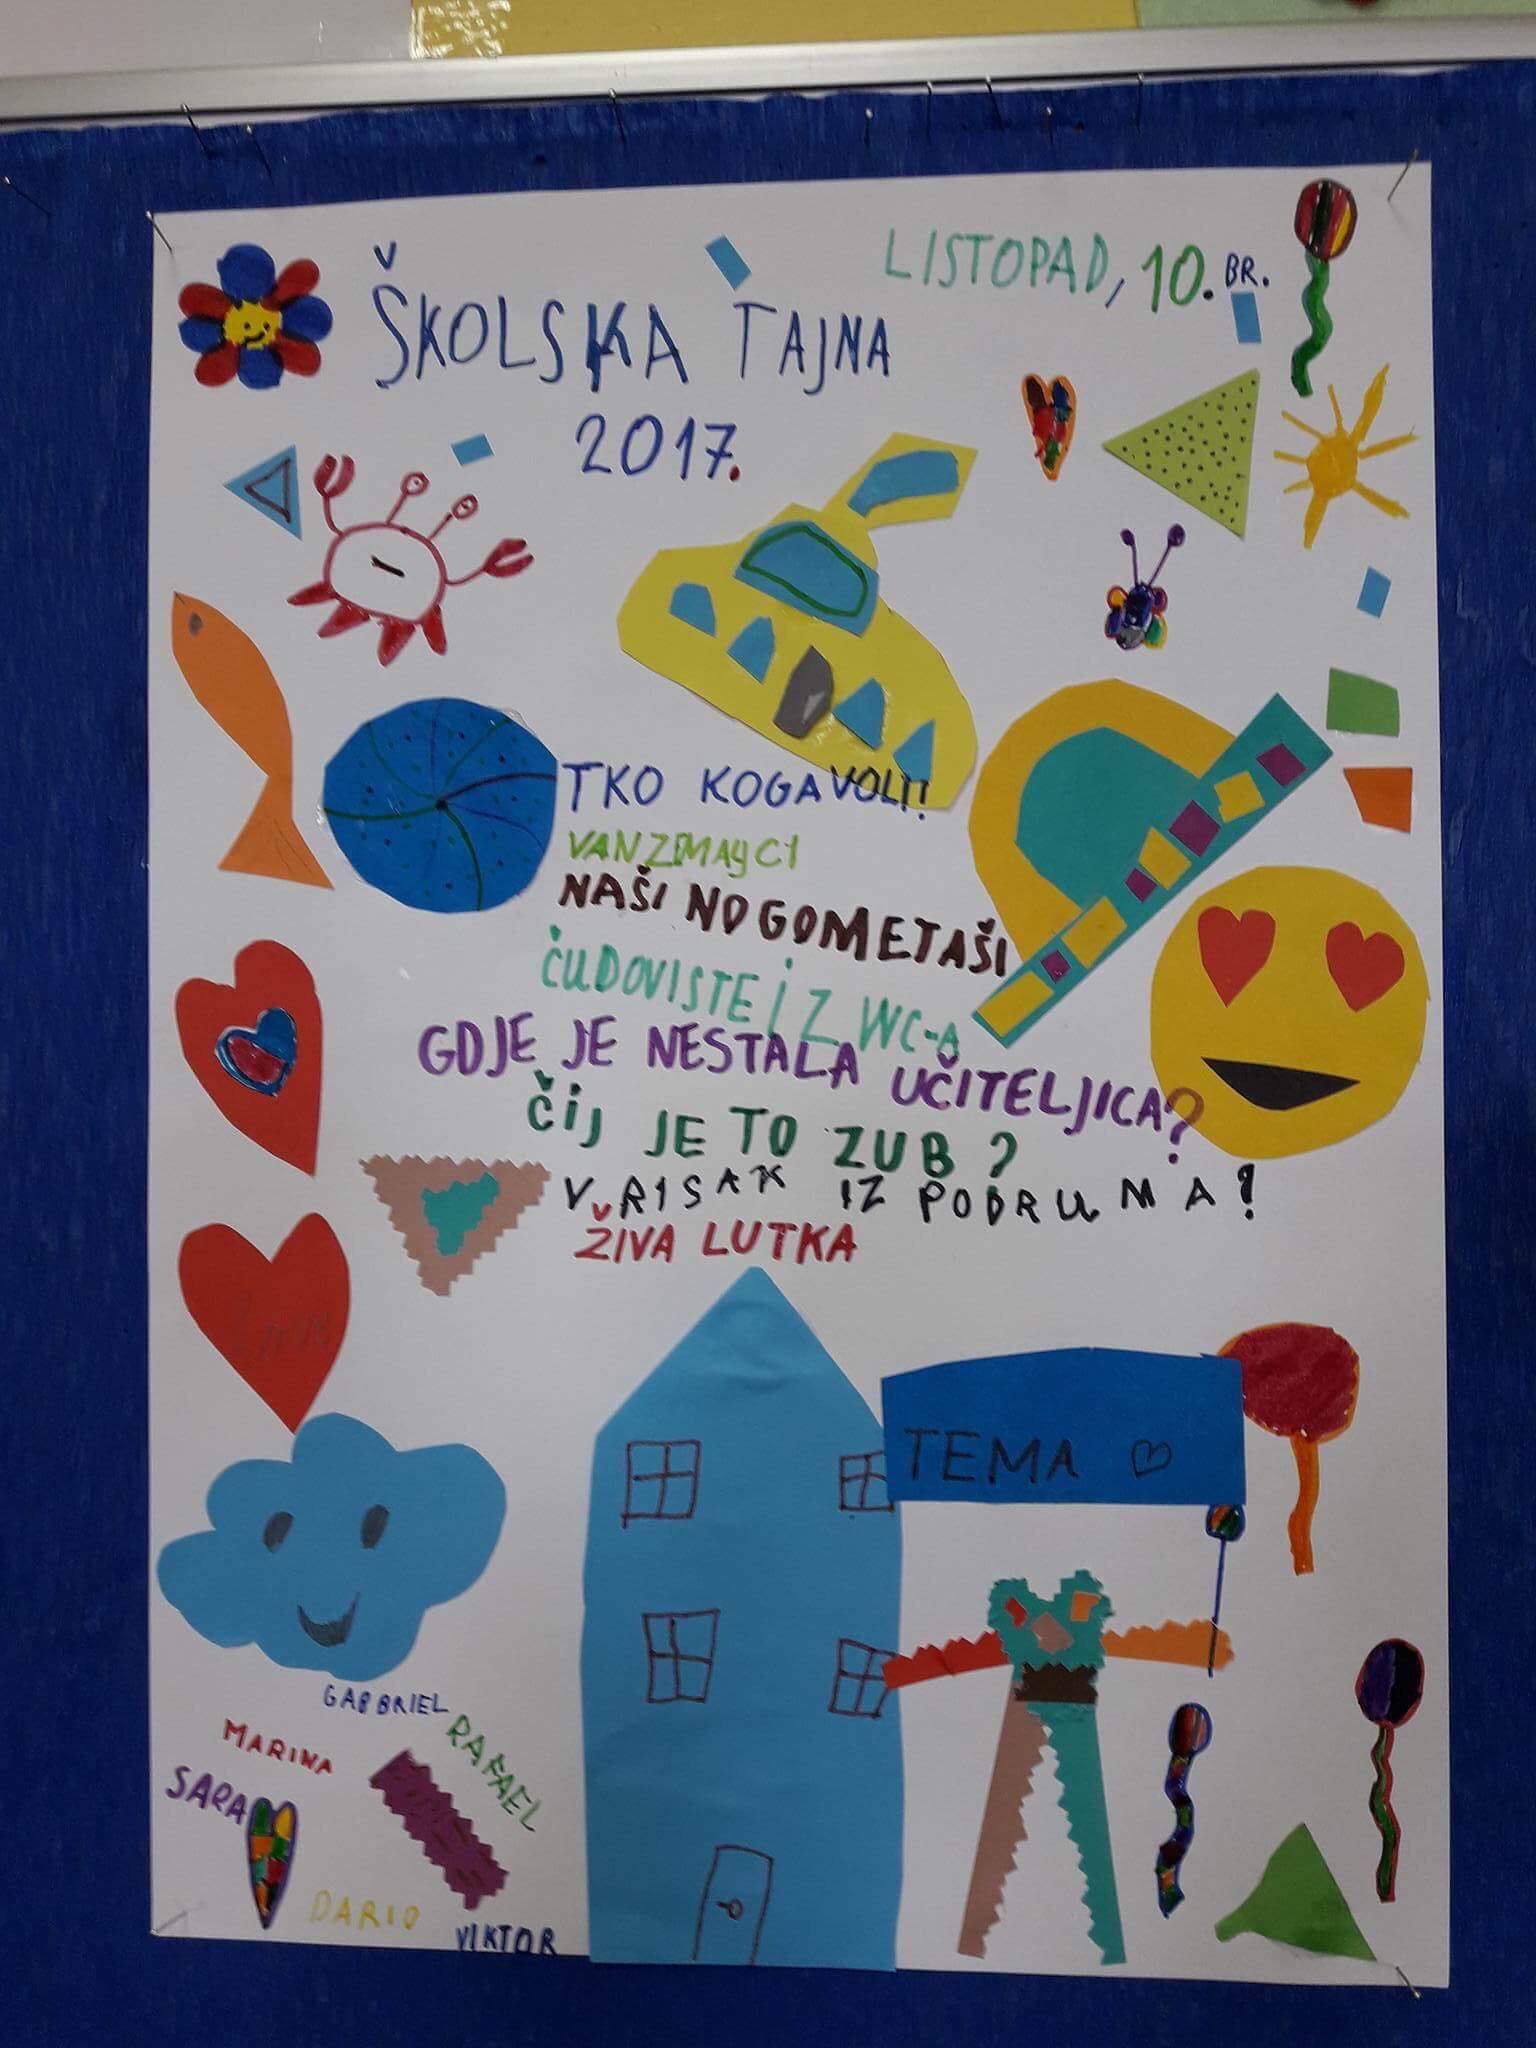 LISTOPAD, 10. BR.
ŠKOLSKA TAJNA
2017.
TKO KOGA VOLI!
VANZEMAYCI
NAŠI NOGOMETAŠI
ČUDOVISTE IZ WC-A
GDJE JE NESTALA UČITELJICA?
ČIJ JE TO ZUB?
VRISAK IZ PODRUMA!
ŽIVA LUTKA
TEMA
GABBRIEL
RAFAEL
MARINA
SARA
DARIO
VIKTOR